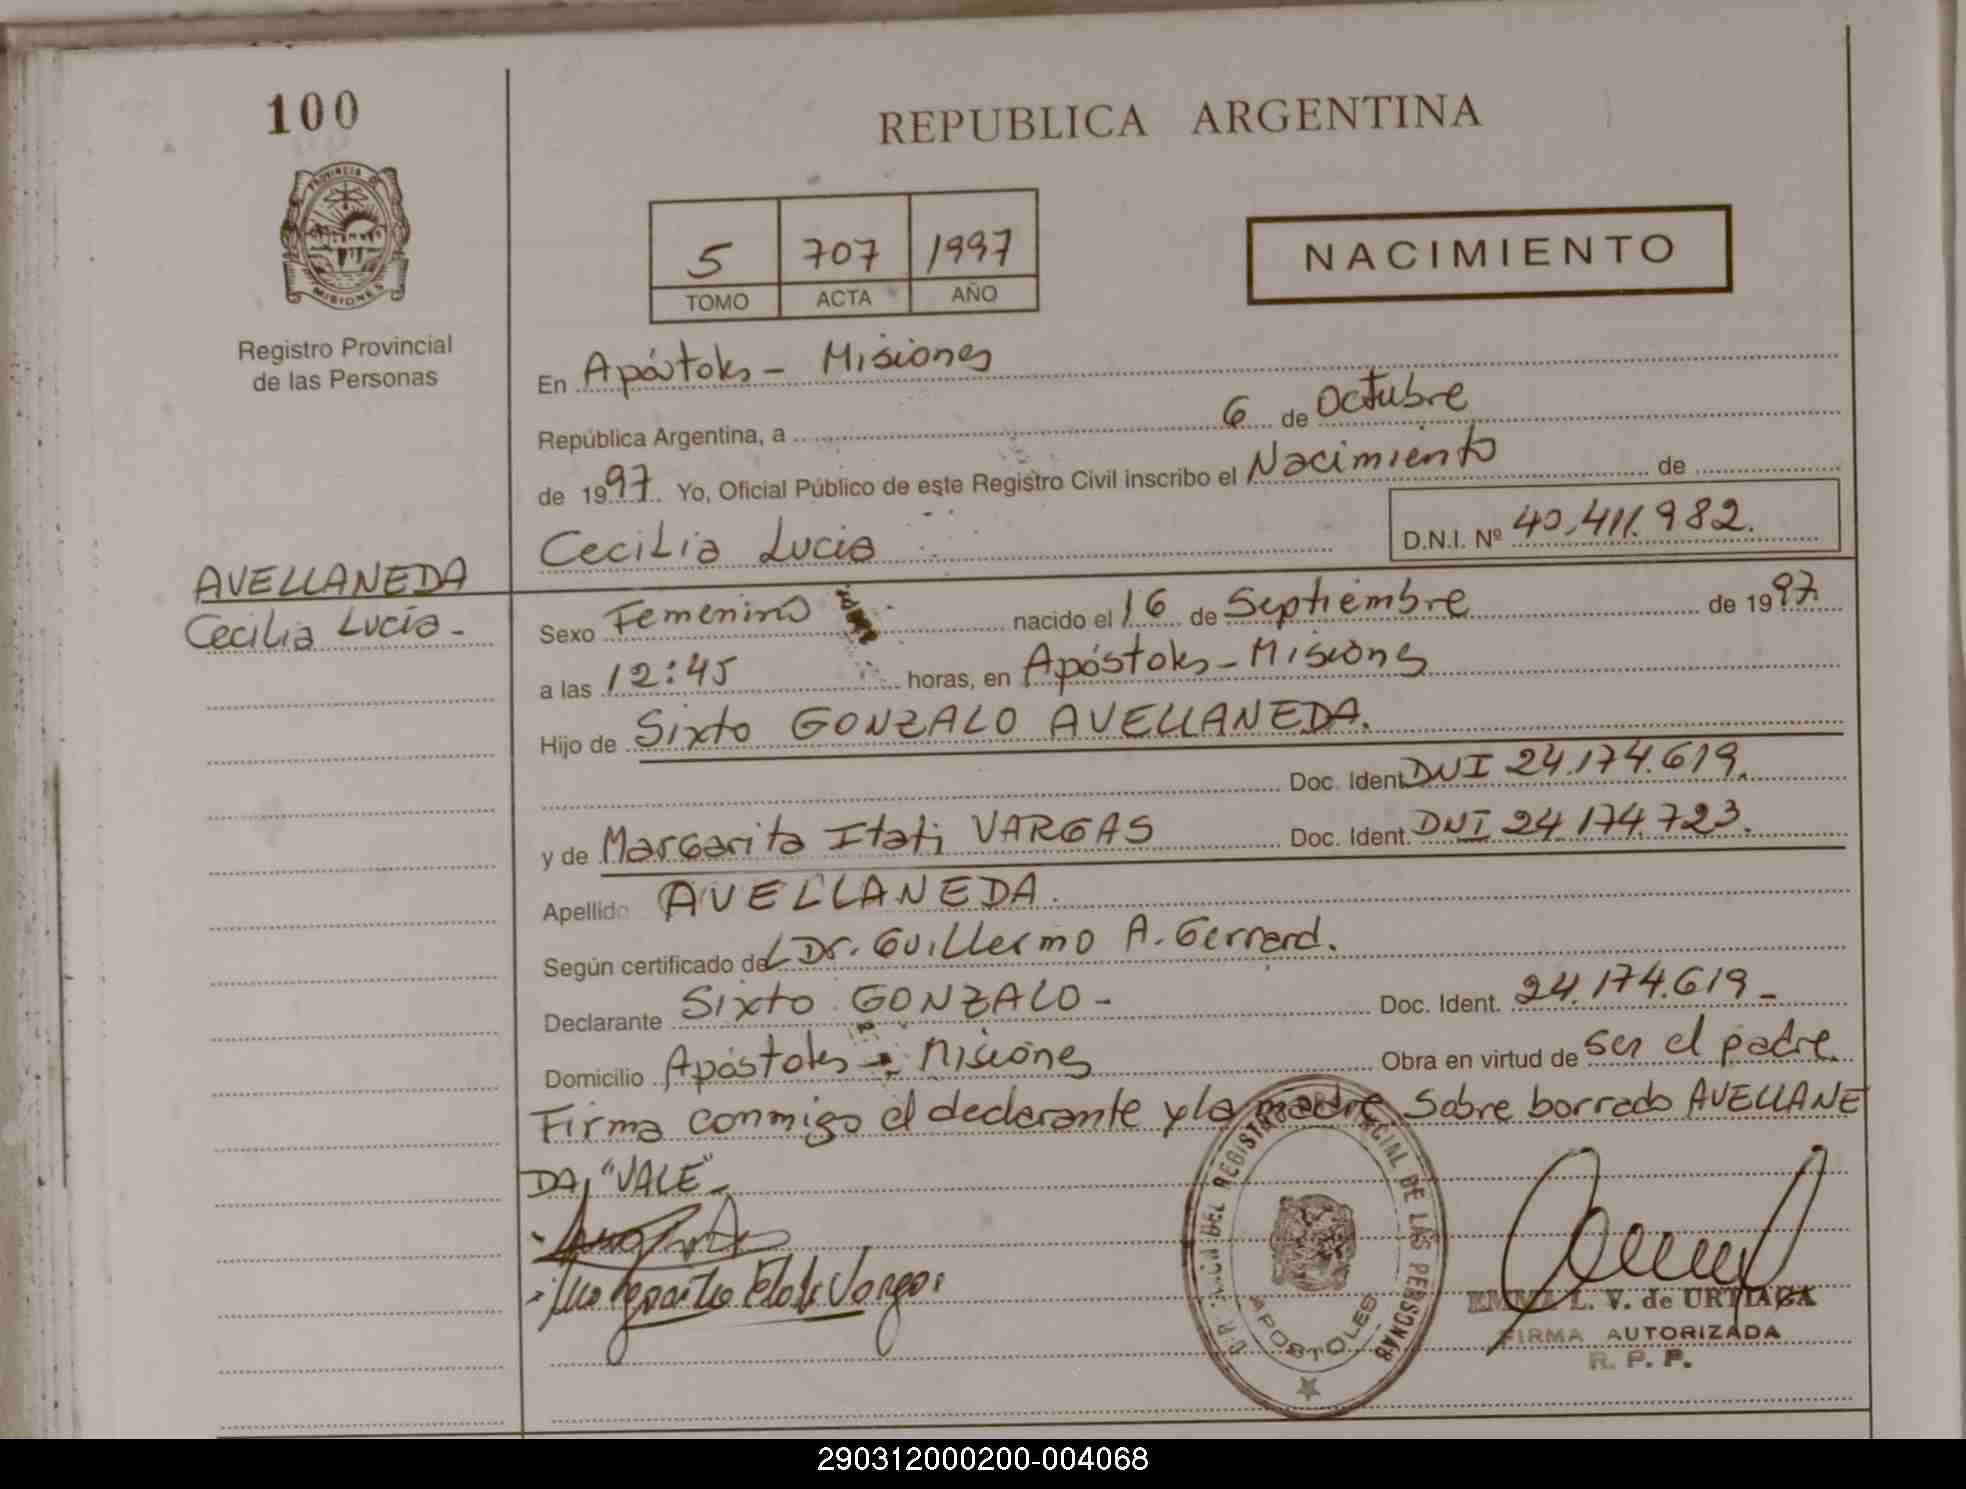 100
REPUBLICA ARGENTINA
PROVINCIA DE
MISIONES
Registro Provincial
de las Personas
5 707 1997
TOMO ACTA AÑO
NACIMIENTO
En Apóstoles - Misiones
República Argentina, a 6 de Octubre
de 1997. Yo, Oficial Público de este Registro Civil inscribo el Nacimiento de
Cecilia Lucia D.N.I. Nº 40.411.982.
AVELLANEDA
Cecilia Lucía -
Sexo Femenino nacido el 16 de Septiembre de 1997.
a las 12:45 horas, en Apóstoles - Misiones
Hijo de Sixto GONZALO AVELLANEDA.
Doc. Ident. DNI 24.174.619.
y de Margarita Itati VARGAS Doc. Ident. DNI 24.174.723.
Apellido AVELLANEDA.
Según certificado del Dr. Guillermo A. Gerrard.
Declarante Sixto GONZALO - Doc. Ident. 24.174.619 -
Domicilio Apóstoles - Misiones Obra en virtud de ser el padre.
Firma conmigo el declarante y la madre. Sobre borrado AVELLANE
DA, "VALE" -
DEL REGISTRO PROVINCIAL DE LAS PERSONAS
APOSTOLES
L. V. de URTIAGA
FIRMA AUTORIZADA
R. P. P.
290312000200-004068